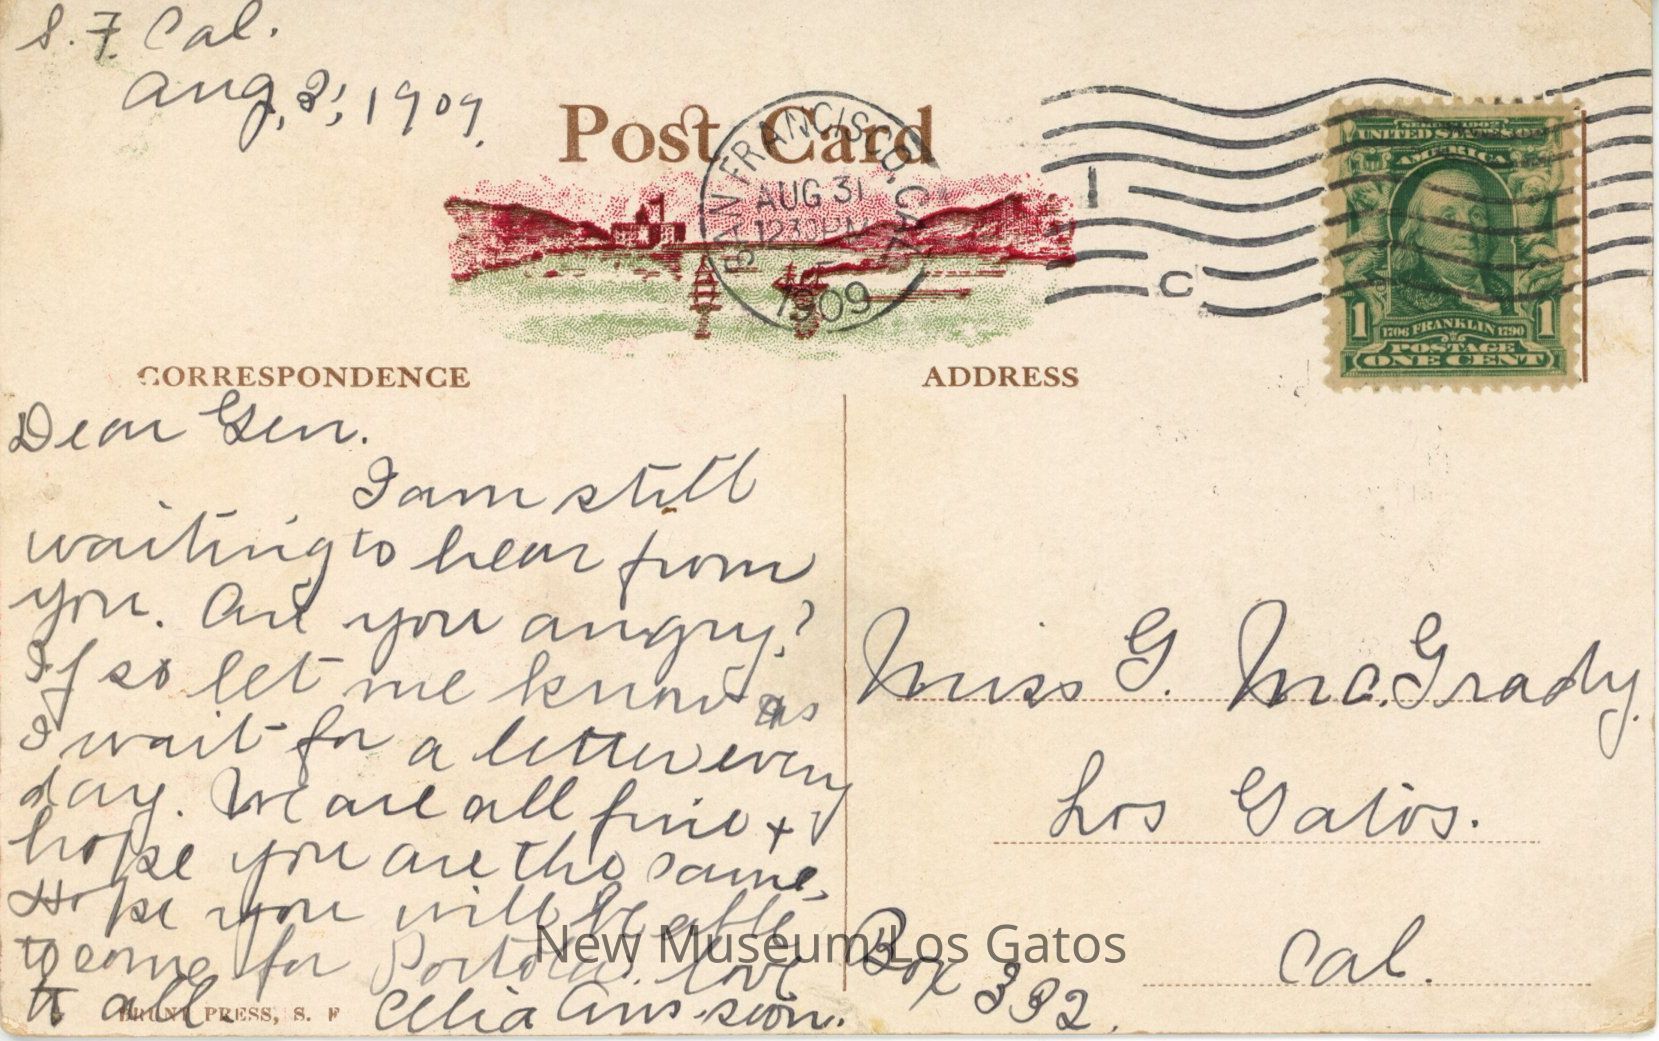 S. F. Cal.
Aug, 31, 1909.
Post Card
SAN FRANCISCO, CAL.
AUG 31
1230 PM
1909
1
C
SERIES 1902
UNITED STATES OF
AMERICA
1 1706 FRANKLIN 1790 1
POSTAGE
ONE CENT
CORRESPONDENCE
ADDRESS
Dear Gen.
I am still
waiting to hear from
you. Are you angry?
If so let me know as
I wait for a letter every
day. We are all fine +
hope you are the same.
Hope you will be able
to come for Portola. love
to all. Celia
BRUNT PRESS, S. F
Miss G. McGrady.
Los Gatos.
Cal.
Box 392.
New Museum Los Gatos